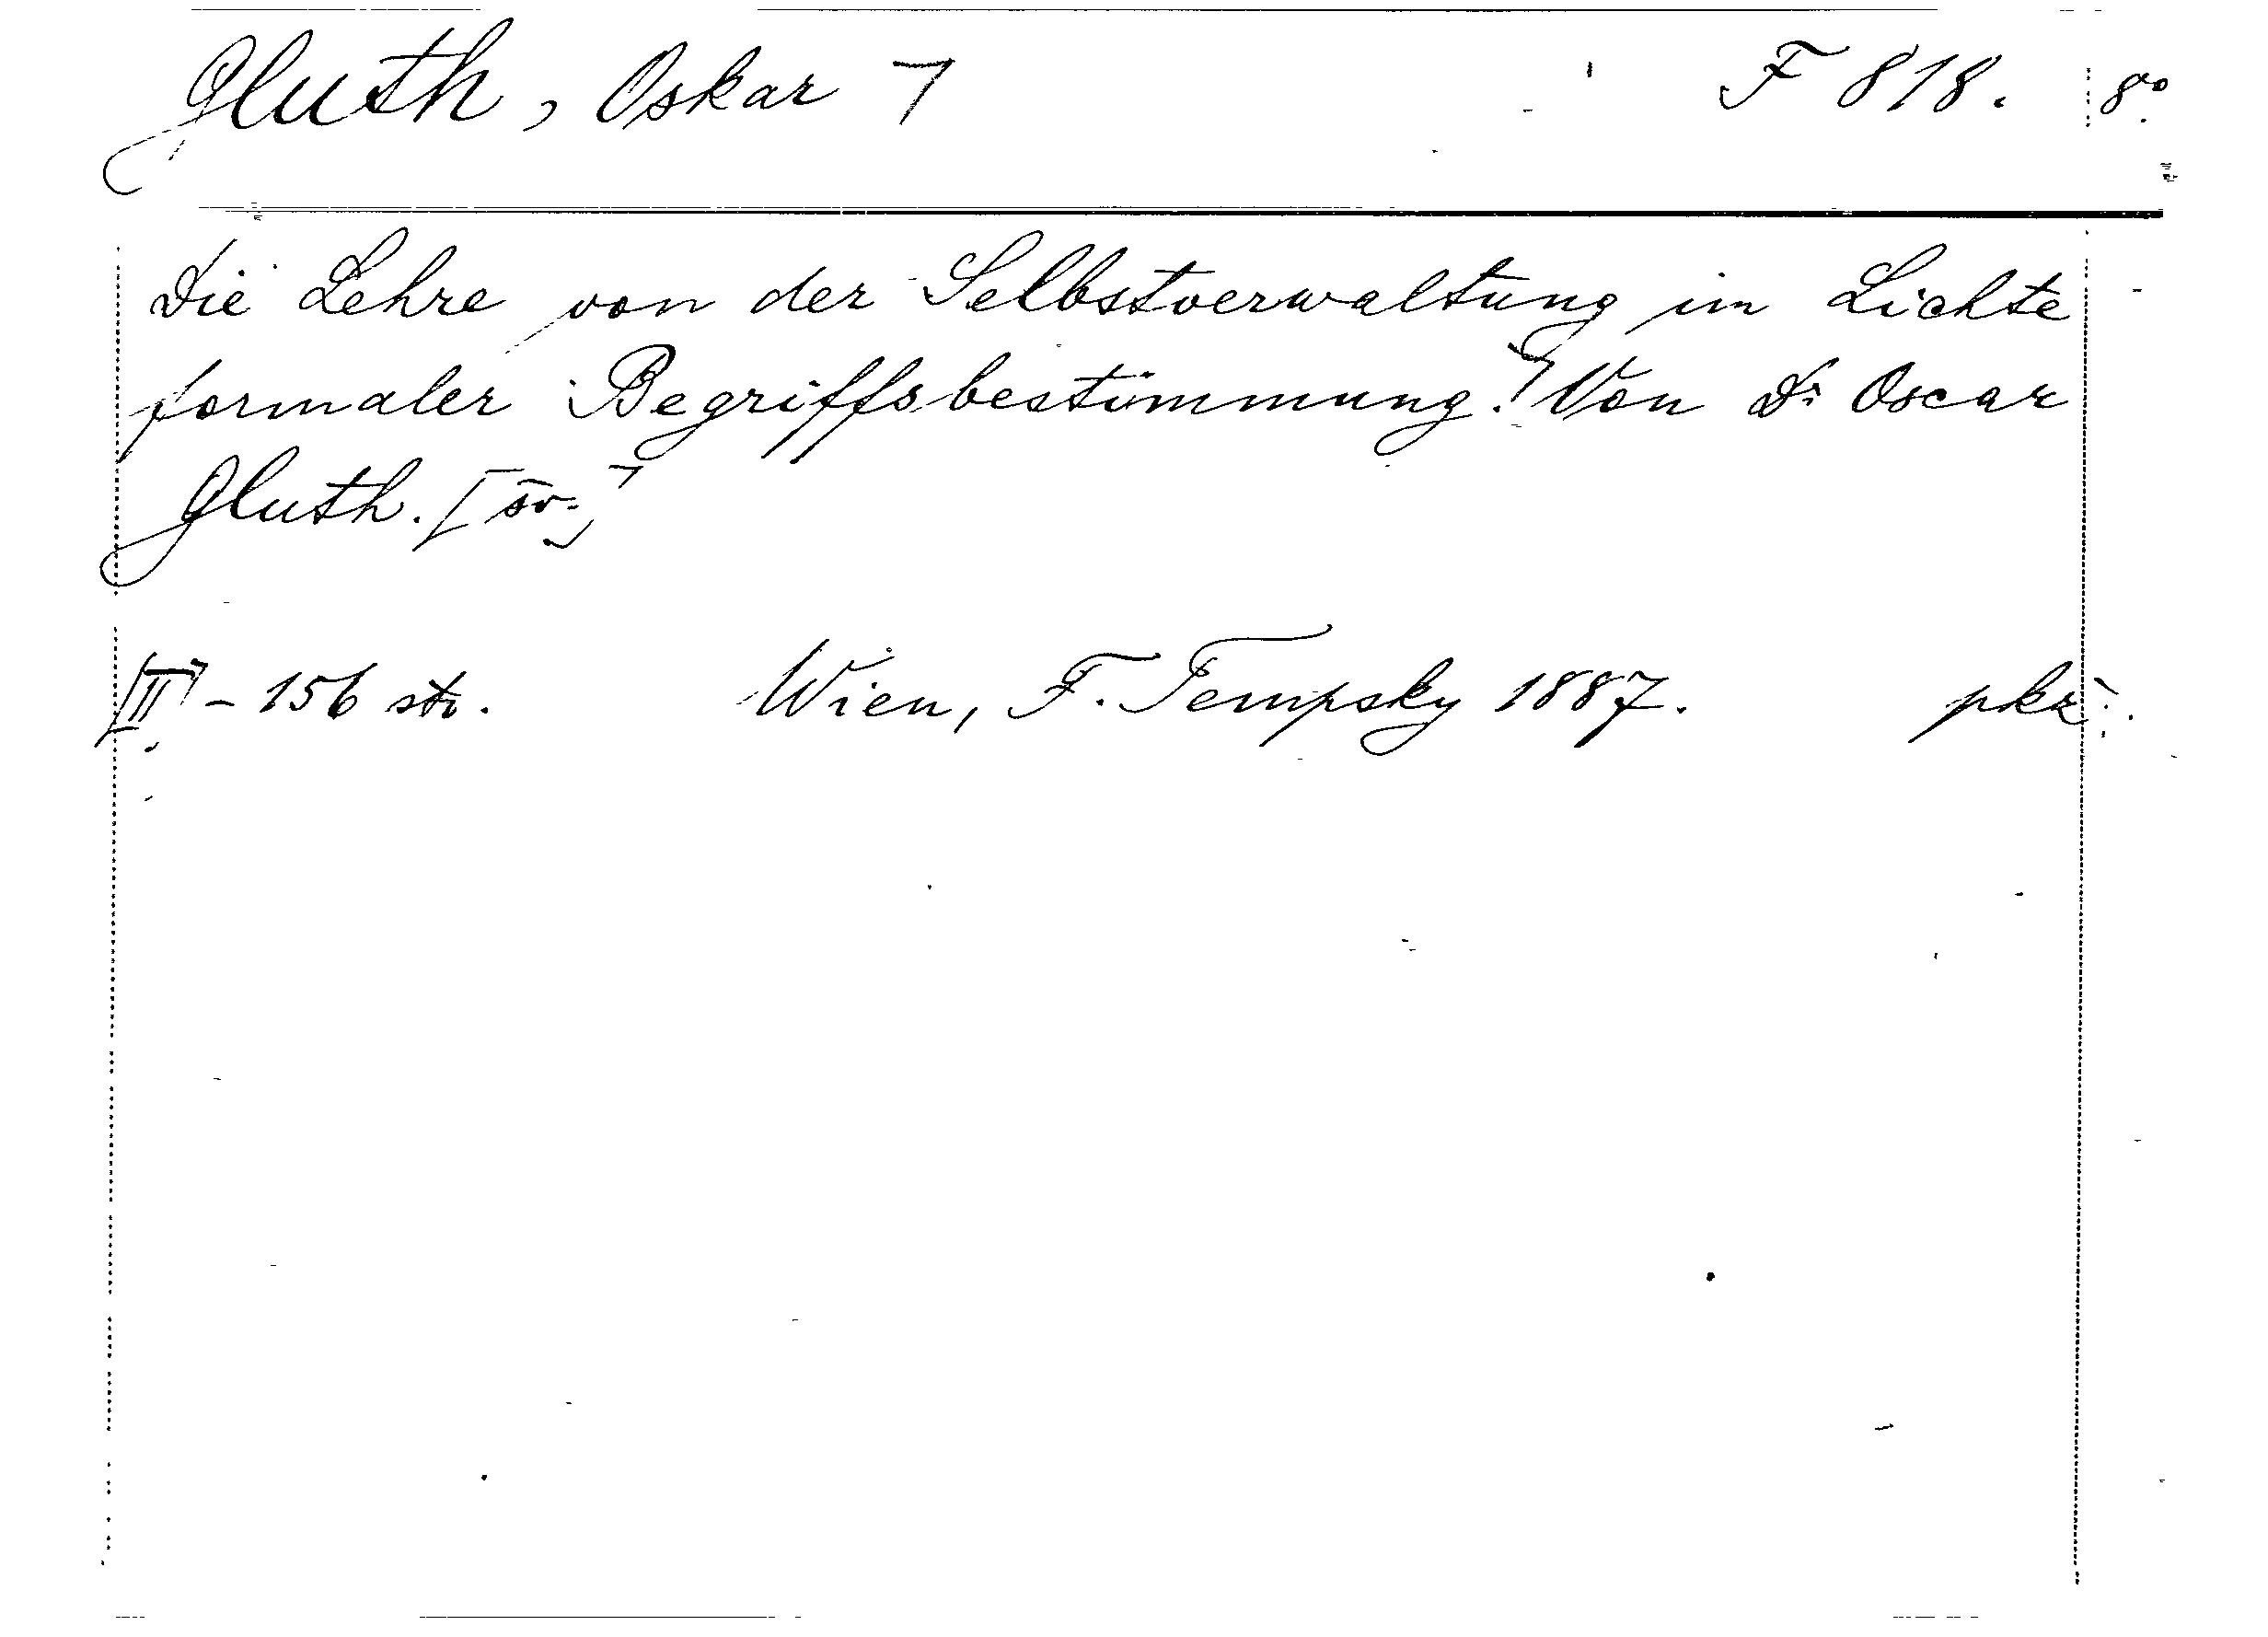 Gluth, Oskar ⁊ F 818. 8°
Die Lehre von der Selbstverwaltung im Lichte
formaler Begriffsbestimmung.⁊ Von Dr Oscar
Gluth.
[II] - 156 str. Wien, F. Tempsky 1887. pkž.